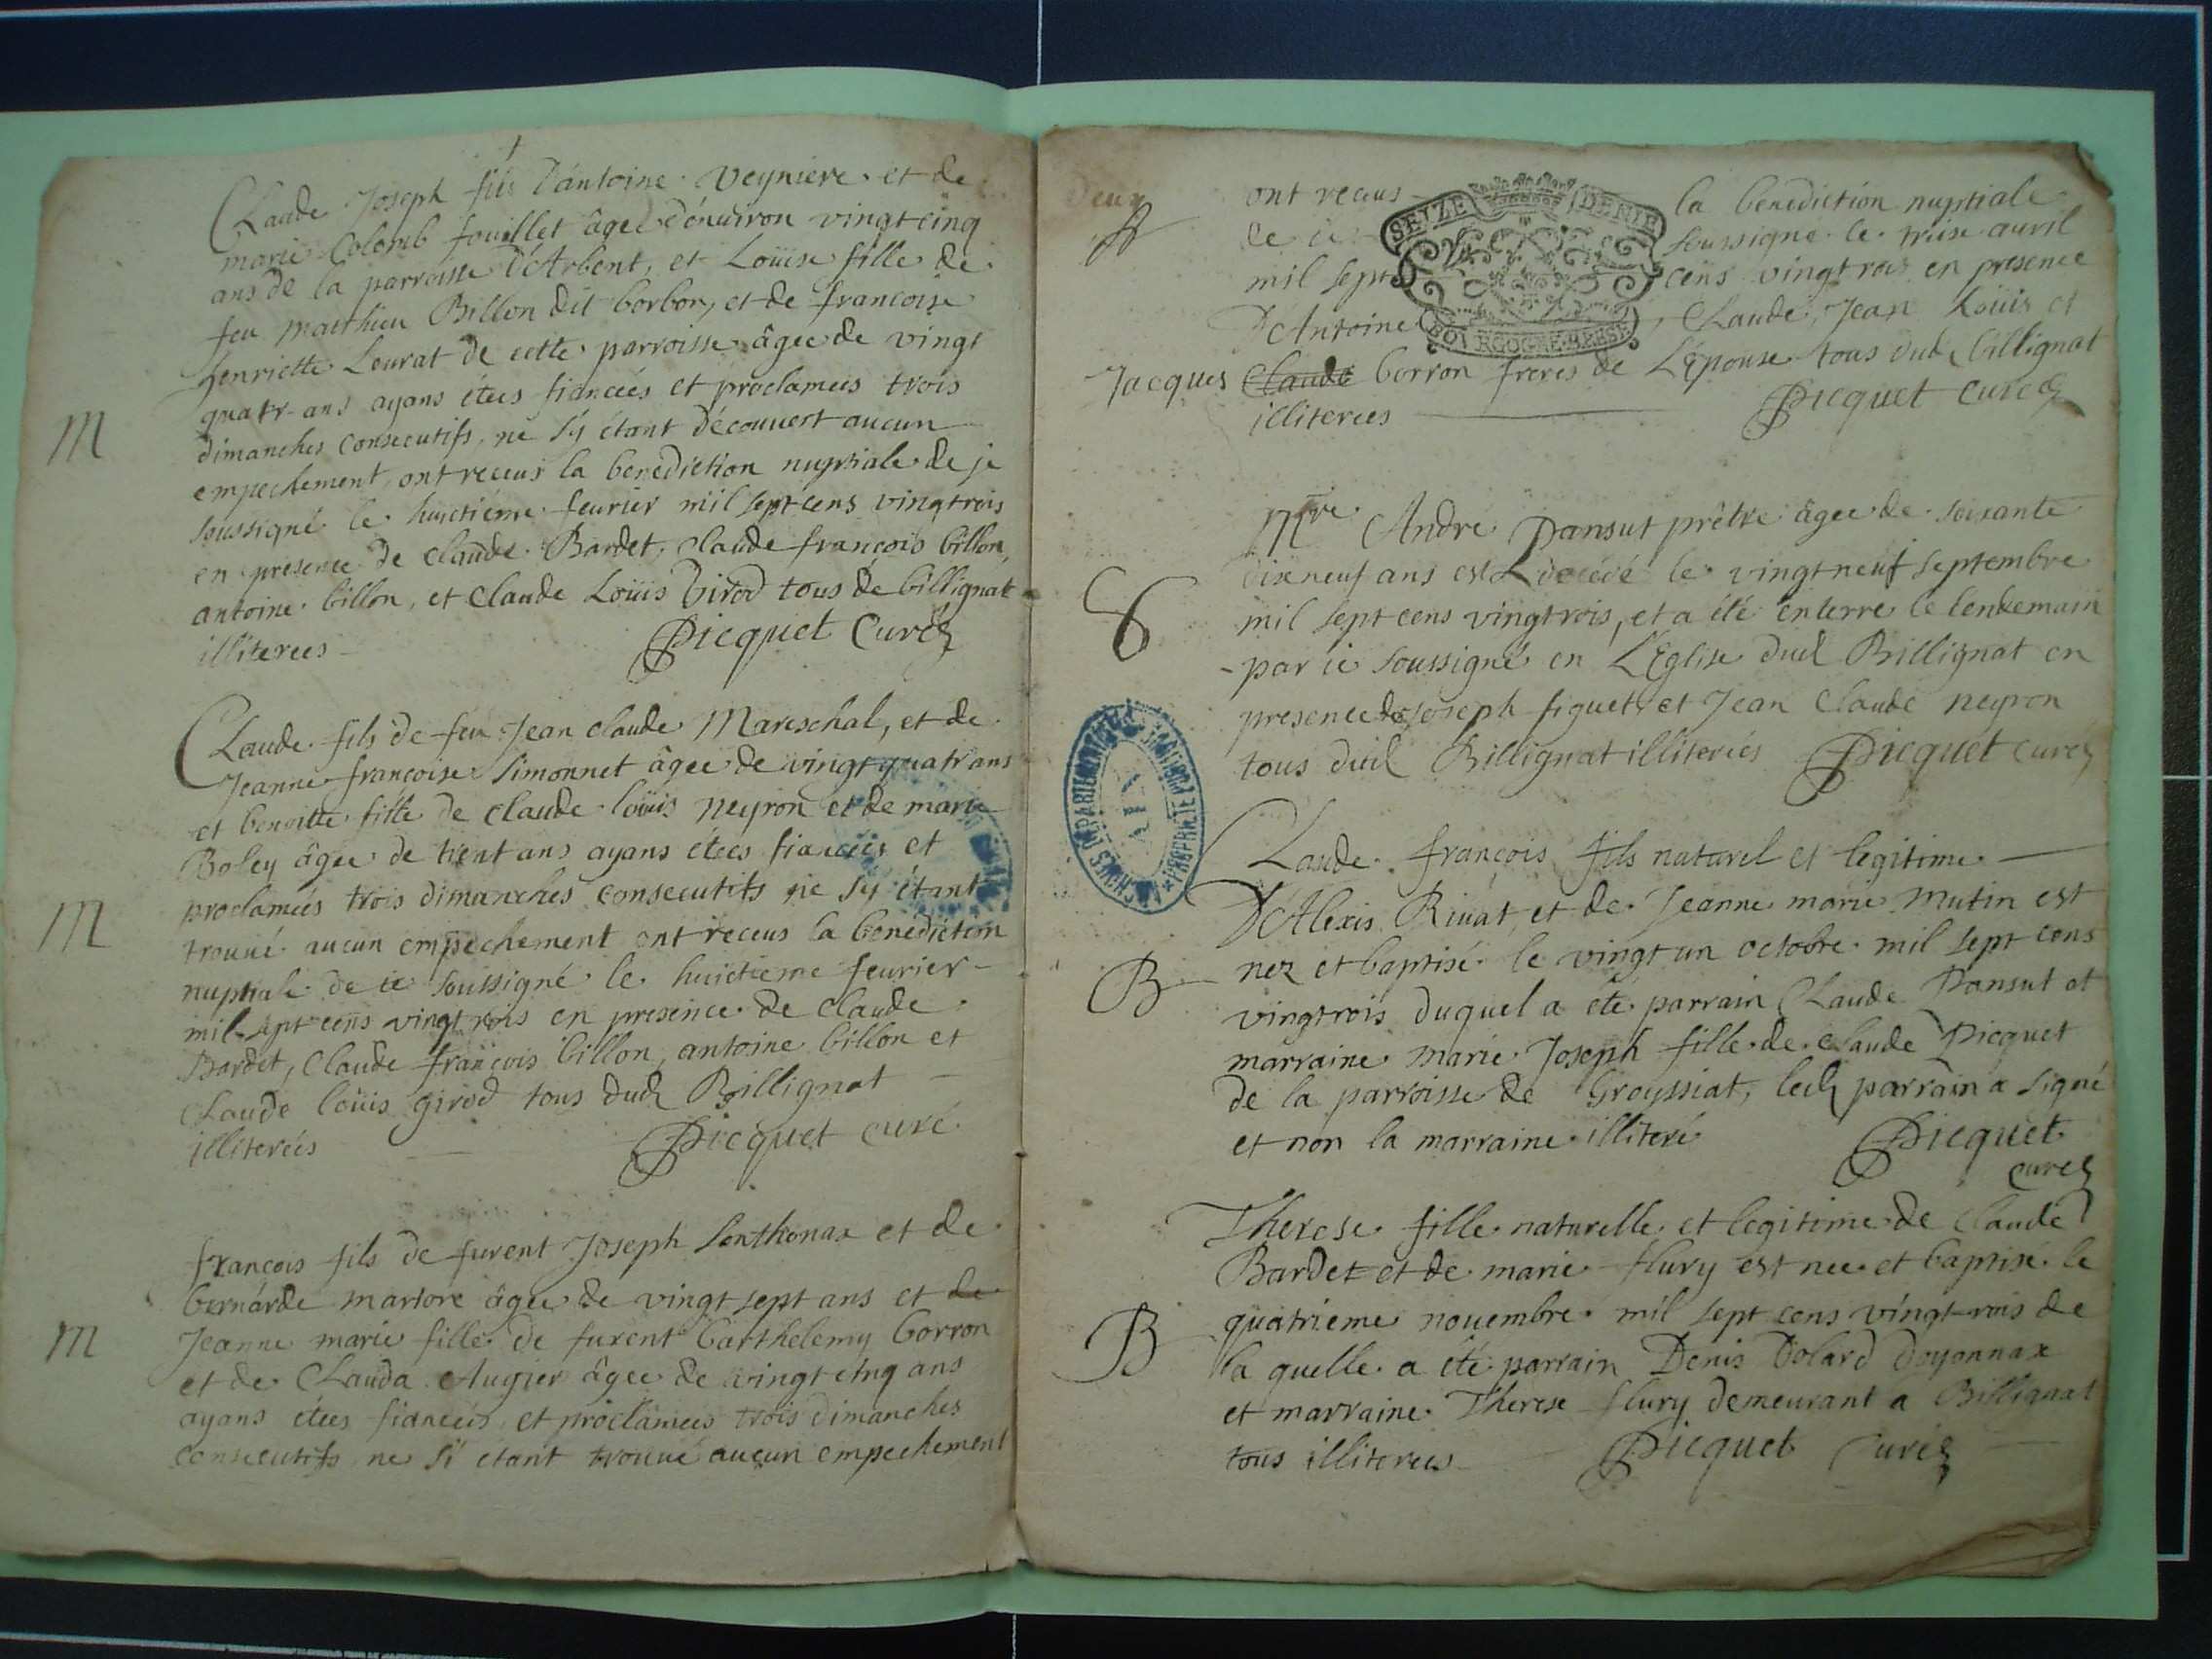 Claude Joseph fils D'antoine Veyniere et de
marie Colomb fouillet âgee d'énuiron vingt cinq
ans de la parroisse D'Arbent, et Loüise fille de
feu matthieu Billon dit borbon, et de francoise
henriette Leurat de cette parroisse âgee de vingt
quatr ans ayans étees fiancéés et proclamees trois
dimanches consecutifs, ne s'y étant découuert aucun
empechement, ont receus la benediction nuptiale de je
soussigné le huictiéme feurier mil sept cens vingtrois
en presence de claude Bardet, claude françois billon,
antoine billon, et Claude Loüis Girod tous de billignat
illiterees
Picquet Curé
M
Claude fils de feu Jean claude Mareschal, et de
Jeanne françoise Simonnet âgee de vingt quatr ans
et benoitte fille de claude loüis neyron et de marie
Boley âgee de trent ans ayans étees fiancéés et
proclaméés trois dimanches consecutifs ne s'y étant
trouué aucun empechement ont receus la benediction
nuptiale de ie soussigné le huictieme feurier
mil sept cens vingt trois en presence de claude
Bardet, Claude françois billon, antoine billon et
Claude loüis girod tous dud Billignat
illiteréés
Picquet curé
M
françois fils de furent Joseph Lonthonax et de
bernarde martore âgee de vingt sept ans et de
Jeanne marie fille de furent barthelemy borron
et de Clauda Augier âgee de vingt cinq ans
ayans étees fiancéés et proclamees trois dimanches
consecutifs ne si étant trouué aucun empechement
M
deux
ont receus la benediction nuptiale
de ie soussigné le treise auril
mil sept cens vingtrois en presence
D'Antoine, Claude, Jean Loüis et
Jacques Claude borron freres de L'Epouse tous dud billignat
illiterees
Picquet curé
SEIZE DENIE
BOURGOGNE BRESSE
Mre Andre Pansut prêtre âgee de soixante
dixneuf ans est decédé le vingtneuf septembre
mil sept cens vingtrois, et a été enterré le lendemain
par ie soussigné en L'Eglise dud Billignat en
presence de Joseph figuet et Jean Claude neyron
tous dud Billignat illiteréés Picquet curé
ARCHIVES DEPARTEMENTALES
AIN
PROPRIETE PUBLIQUE
Claude françois fils naturel et legitime
D'Alexis Riuat et de Jeanne marie Mutin est
nez et baptisé le vingt un octobre mil sept cens
vingtrois duquel a été parrain Claude Pansut et
marraine marie Joseph fille de claude Picquet
de la parroisse de Groyssiat, led parrain a signé
et non la marraine illiteré
Picquet
curé
B
Therese fille naturelle et legitime de Claude
Bardet et de marie flury est nee et baptisé le
quatrieme nouembre mil sept cens vingt-rois de
la quelle a été parrain Denis Dolard doyonnax
et marraine Therese flury demeurant a Billignat
tous illiterees
Picquet Curé
B